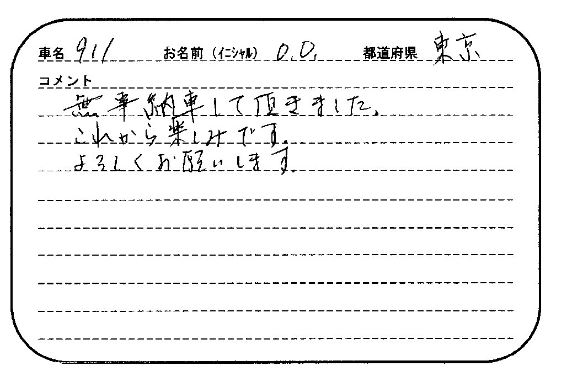 車名 911 お名前（イニシャル） O.O. 都道府県 東京
コメント
無事納車して頂きました。
これから楽しみです。
よろしくお願いします